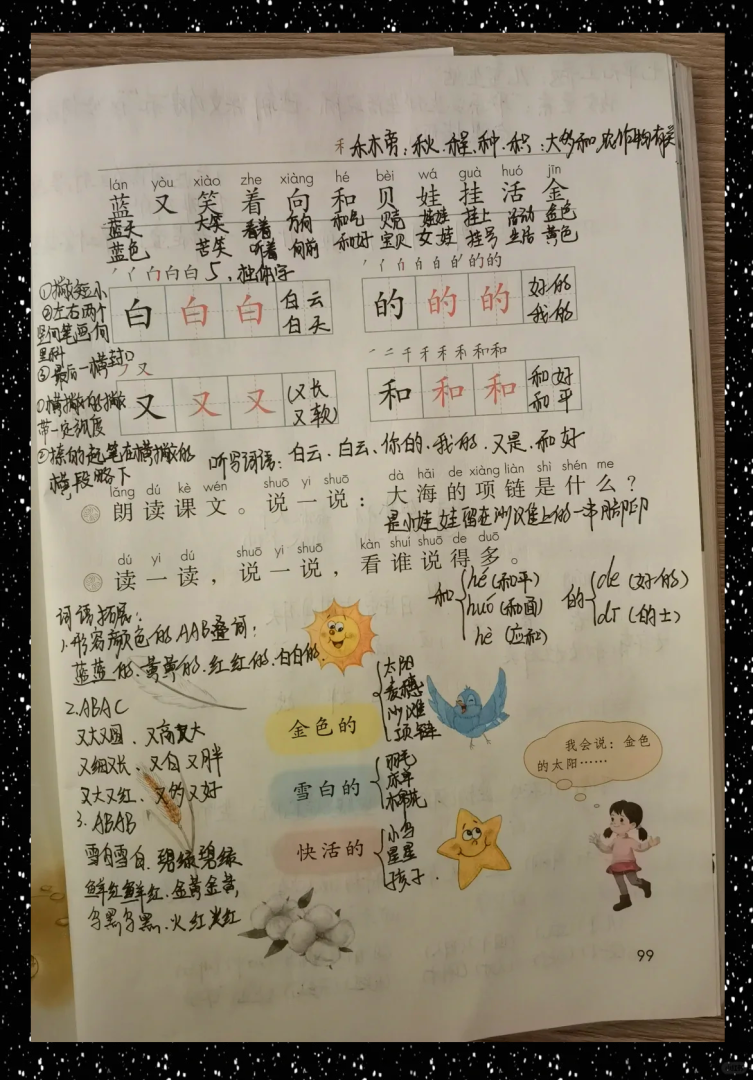 禾木旁：秋、程、种、积：大多和农作物有关
lán yòu xiào zhe xiàng hé bèi wá guà huó jīn
蓝 又 笑 着 向 和 贝 娃 挂 活 金
蓝天 大笑 看着 方向 和气 贝壳 娃娃 挂上 活动 金色
蓝色 苦笑 听着 向前 和好 宝贝 女娃 挂号 生活 黄色
5，独体字
白 白 白 白云 白天
的 的 的 好的 我的
①撇短小
②左右两个竖向笔画向里斜
③最后一横封口
又 又 又 （又长 又软）
和 和 和 和好 和平
①横撇的撇带一定弧度
②捺的起笔在横撇的横段略下
听写词语：白云、白云、你的、我的、又是、和好
lǎng dú kè wén shuō yi shuō dà hǎi de xiàng liàn shì shén me
朗读课文。说一说：大海的项链是什么？
是小娃娃留在沙滩上的一串脚印
dú yi dú shuō yi shuō kàn shuí shuō de duō
读一读，说一说，看谁说得多。
和 hé（和平） huó（和面） hè（应和）
的 de（好的） dī（的士）
词语拓展：
1.形容颜色的AAB叠词：
蓝蓝的、黄黄的、红红的、白白的
2.ABAC
又大又圆、又高又大
又细又长、又白又胖
又大又红、又多又好
3.ABAB
雪白雪白、碧绿碧绿
鲜红鲜红、金黄金黄、
乌黑乌黑、火红火红
金色的 太阳 麦穗 沙滩 项链
雪白的 羽毛 棉花
快活的 小鸟 星星 孩子
我会说：金色
的太阳……
99